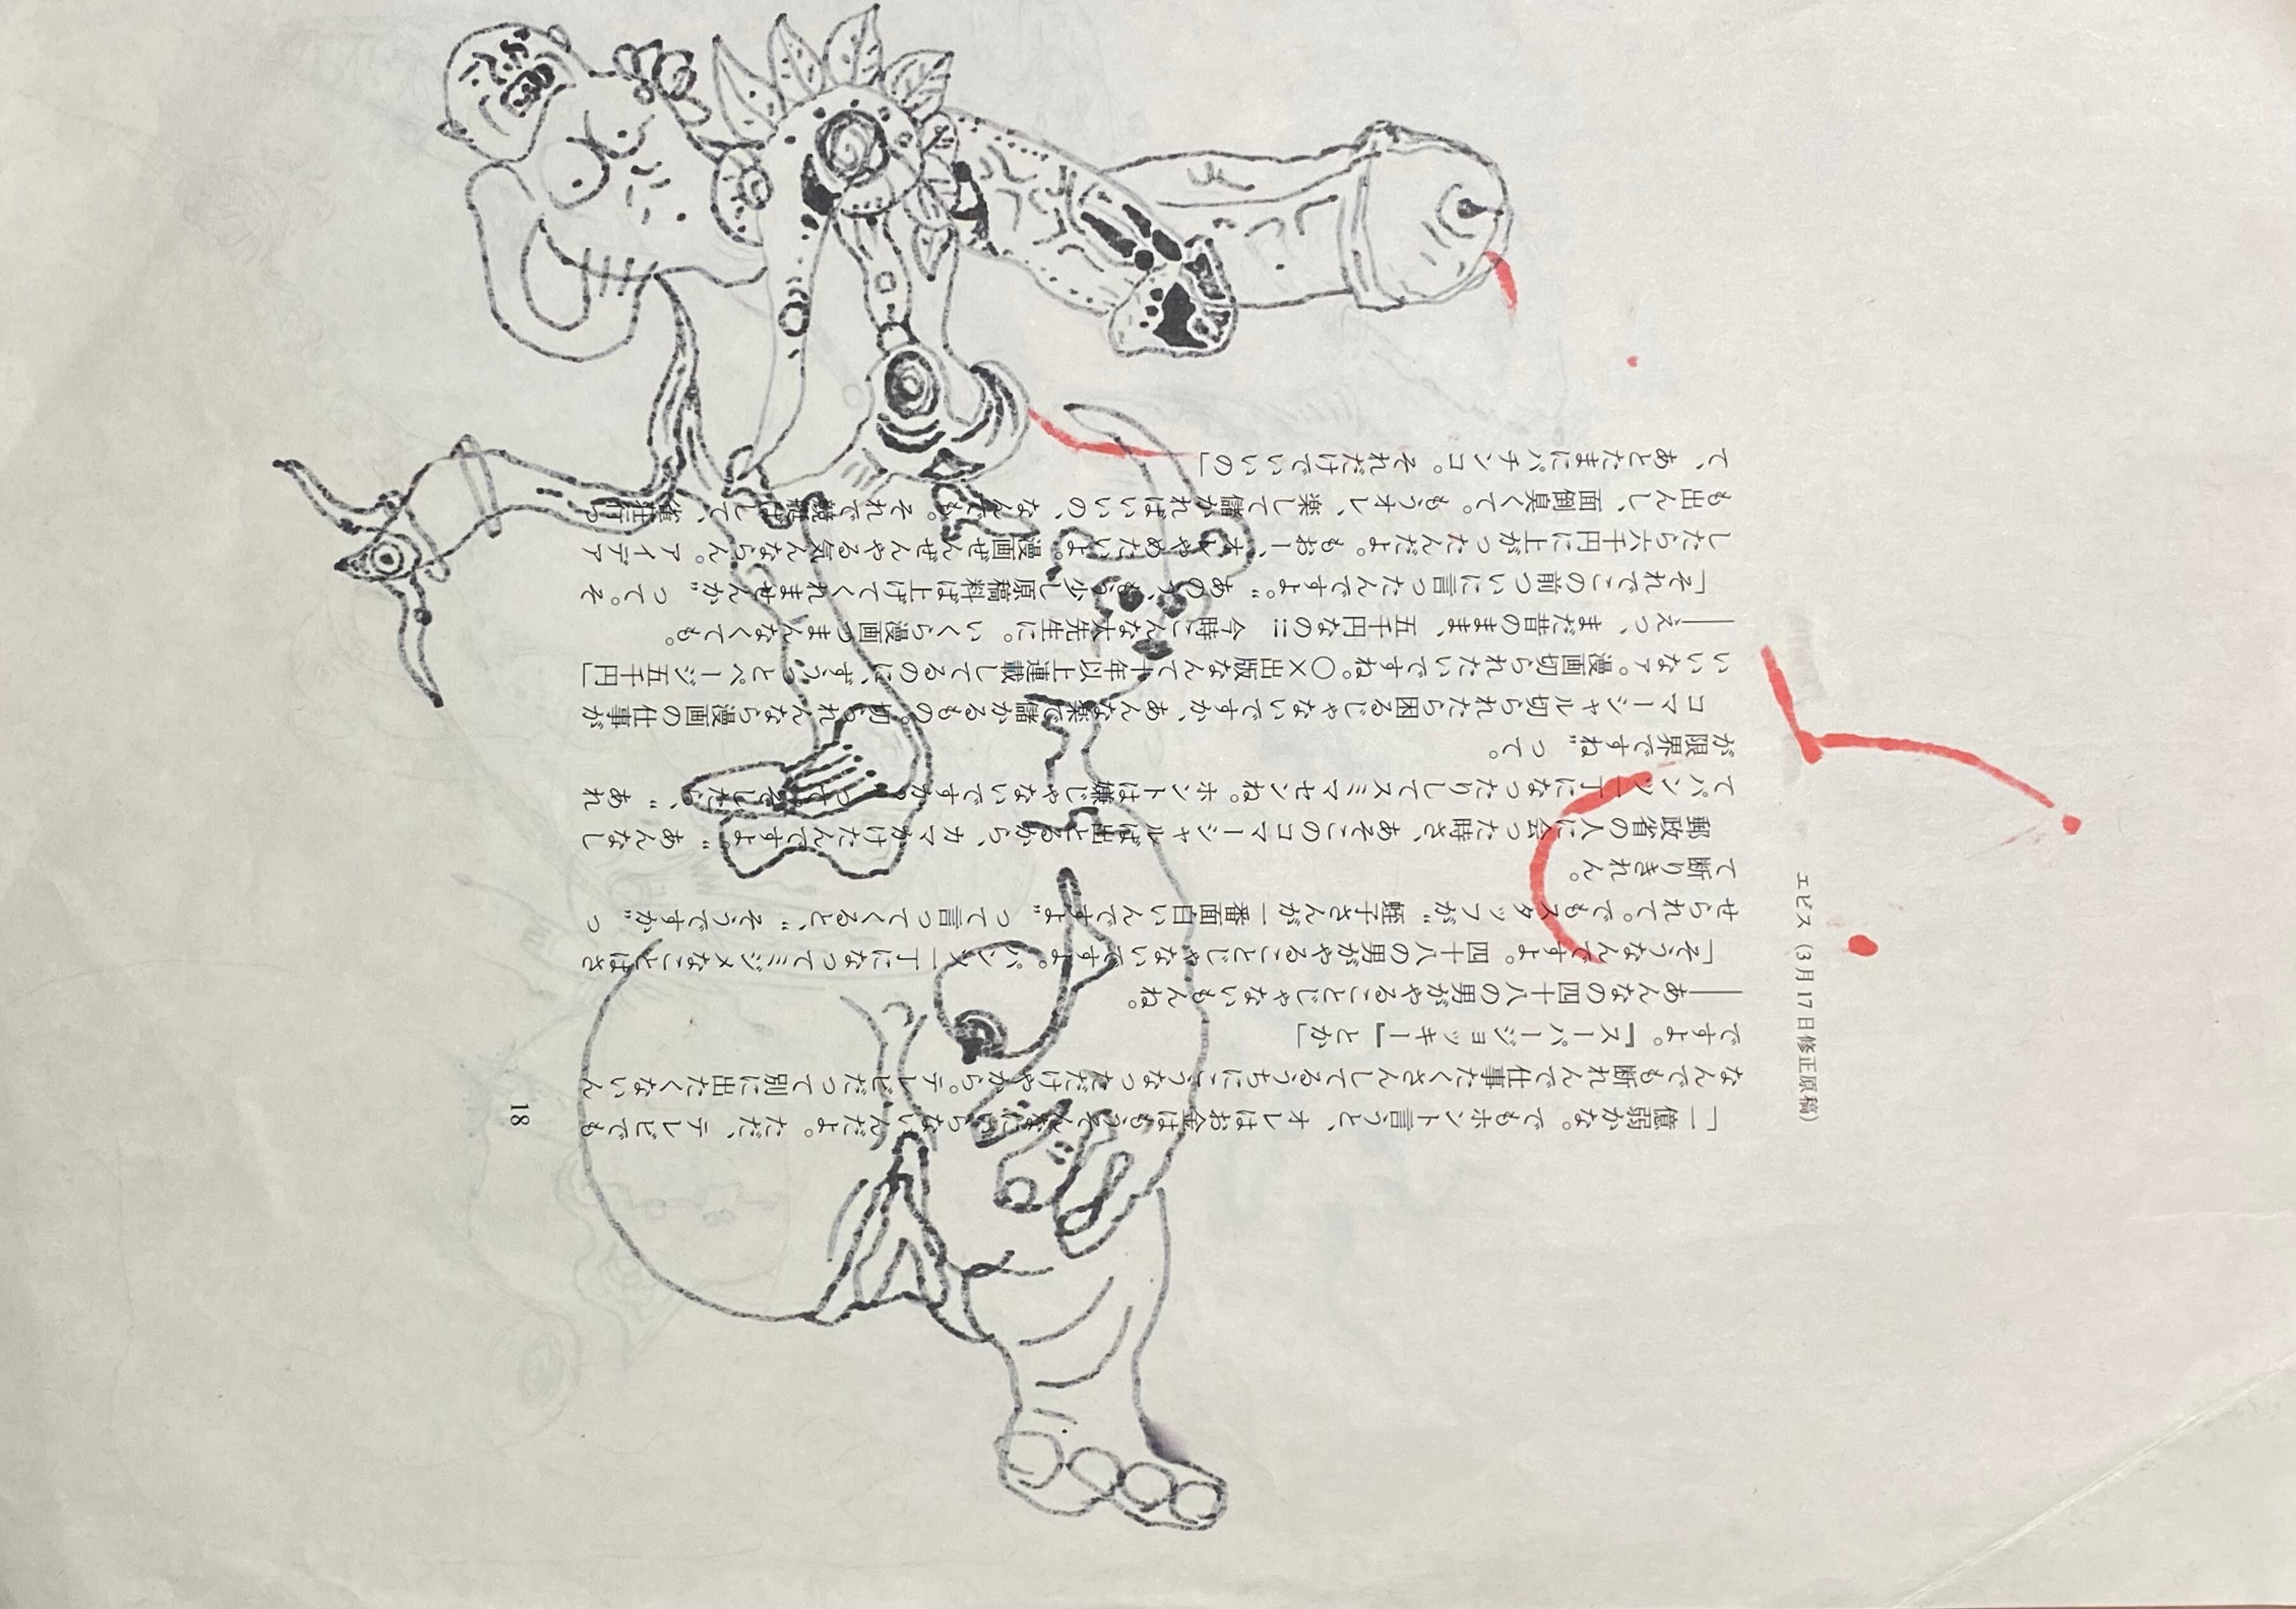 エビス（3月17日修正原稿）
「一億弱かな。でもホント言うと、オレはお金はもうそんなにいらないんだよ。ただ、テレビでも
なんでも断れんで仕事たくさんしてるうちにこうなっただけやから。テレビだって別に出たくないん
ですよ。『スーパージョッキー』とか」
――あんなの四十八の男がやることじゃないもんね。
「そうなんですよ。四十八の男がやることじゃないですよ。パンツ一丁になってミジメなことはさ
せられて。でもスタッフが“蛭子さんが一番面白いんですよ”って言ってくると、“そうですか”っ
て断りきれん。
郵政省の人に会った時さ、あそこのコマーシャルば出とるから、カマかけたんですよ。“あんなし
てパンツ一丁になったりしてスミマセンね。ホントは嫌じゃないですか？”って。そしたら、“あれ
が限界ですね”って。
コマーシャル切られたら困るじゃないですか、あんな楽で儲かるもの。切られんなら漫画の仕事が
いいなァ。漫画切られたいですね。〇×出版なんて十年以上連載してるのに、ずうっとページ五千円」
――えっ、まだ昔のまま、五千円なの!! 今時こんな大先生に。いくら漫画つまんなくても。
「それでこの前ついに言ったんですよ。“あのう、もう少し原稿料ば上げてくれませんか”って。そ
したら六千円に上がったんだよ。もおー、オレやめたいよ。漫画ぜんぜんやる気んならん。アイデア
も出んし、面倒臭くて。もうオレ、楽して儲かればいいの、なんでも。それで競艇ばして、雀荘行っ
て、あとたまにパチンコ。それだけでいいの」
18